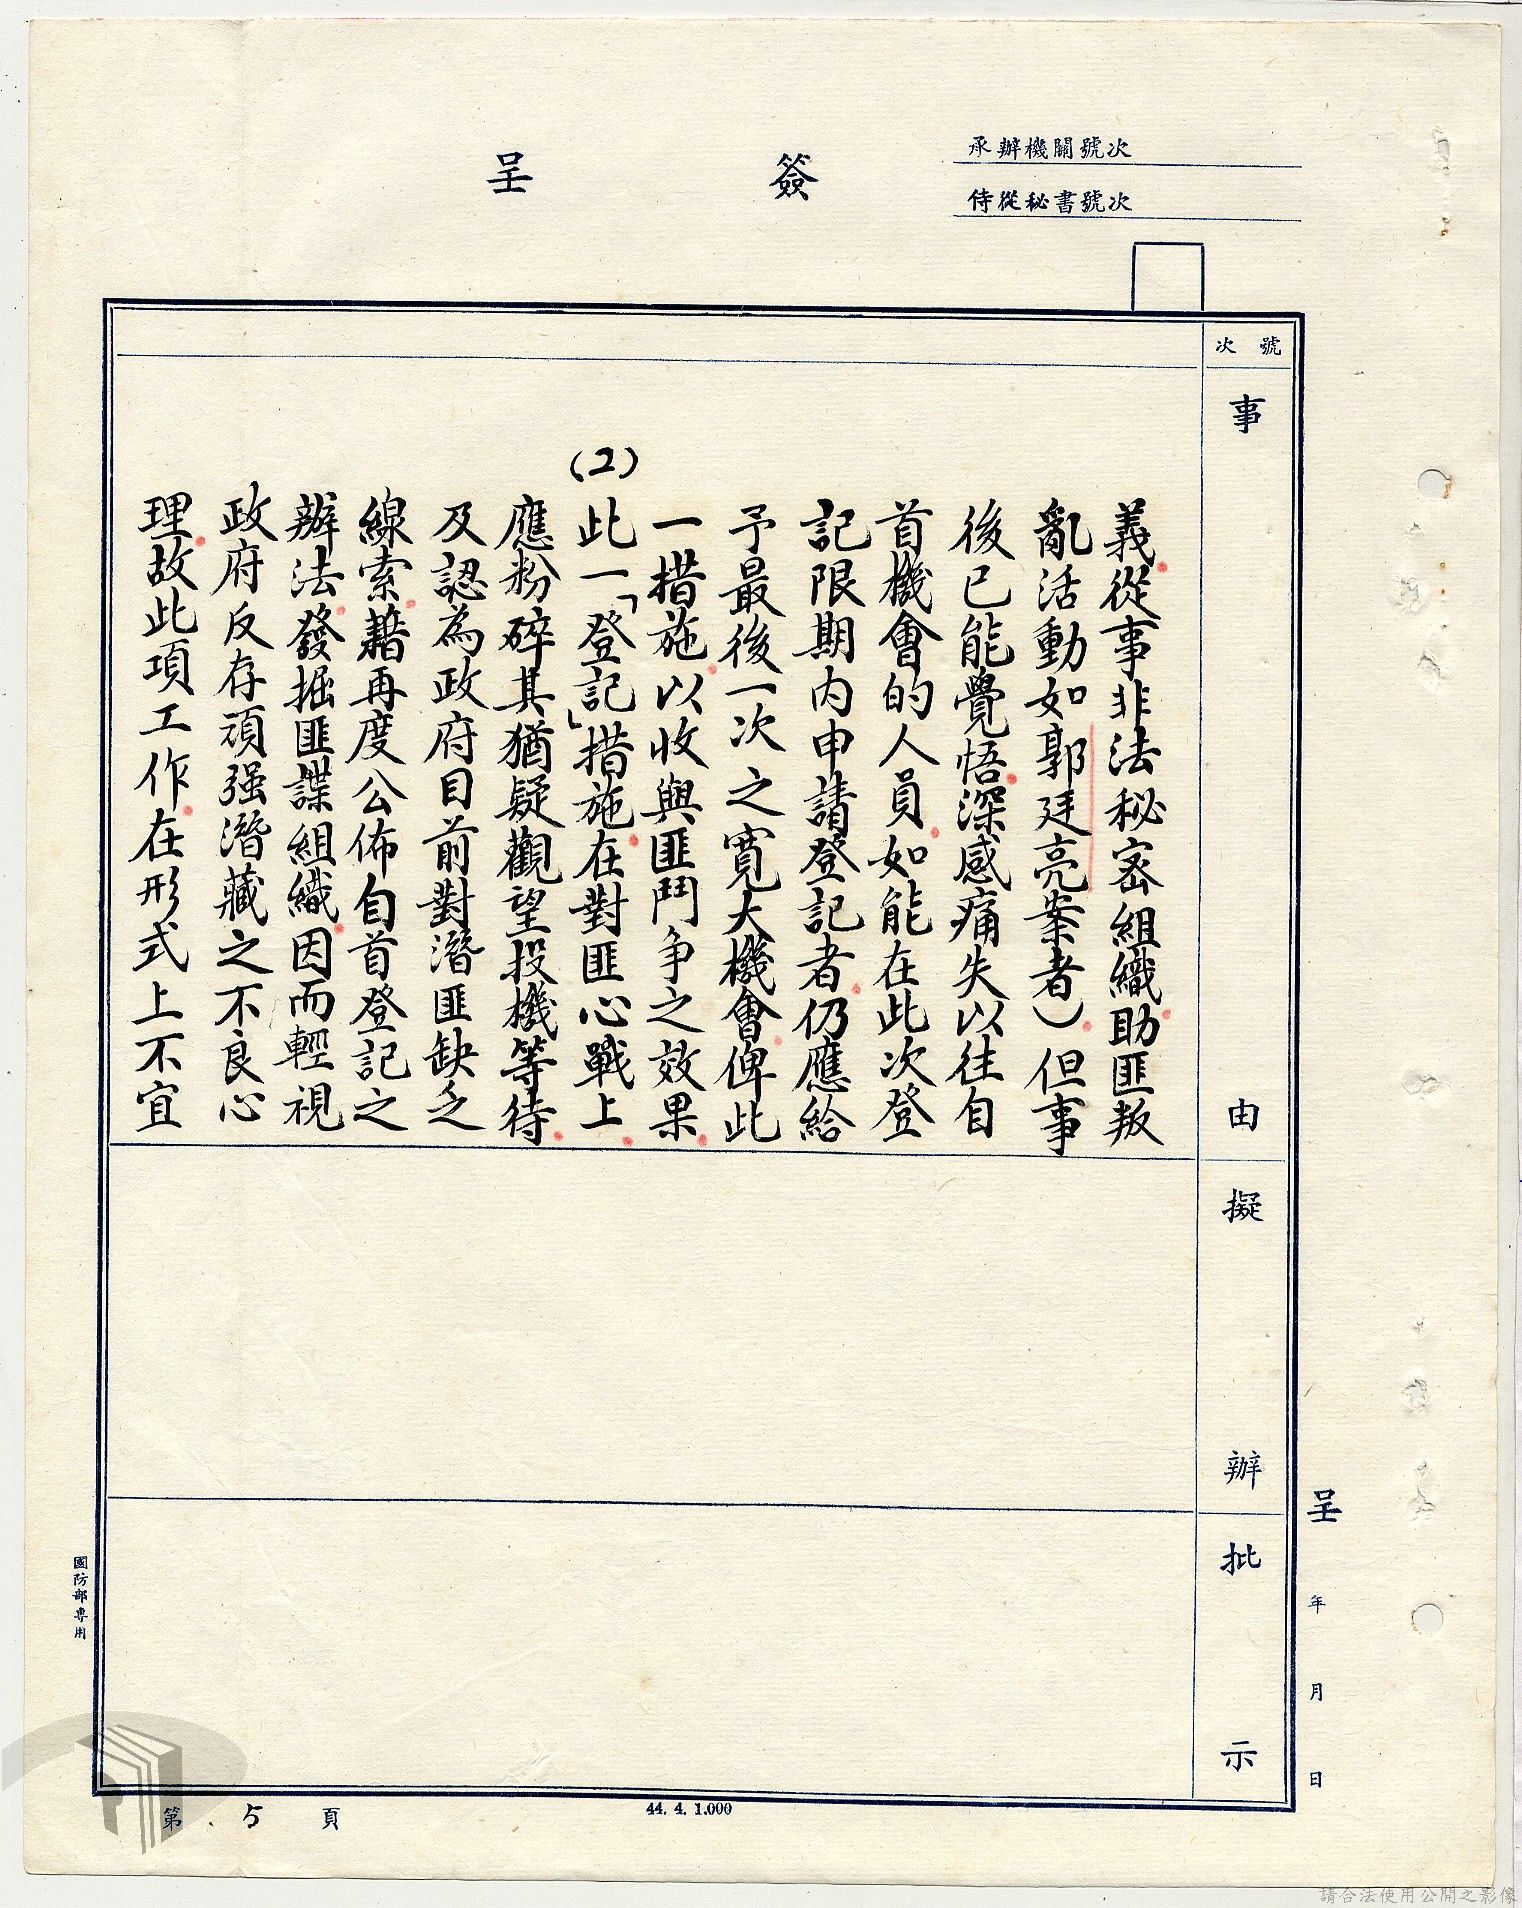 簽呈
承辦機關號次
侍從秘書號次
號次
事由
擬辦
批示
義從事非法秘密組織助匪叛
亂活動如郭廷亮案者）但事
後已能覺悟深感痛失以往自
首機會的人員如能在此次登
記限期內申請登記者仍應給
予最後一次之寬大機會俾此
一措施以收與匪鬥争之效果
(2)此一「登記」措施在對匪心戰上
應粉碎其猶疑觀望投機等待
及認為政府目前對潛匪缺乏
線索藉再度公佈自首登記之
辦法發掘匪諜組織因而輕視
政府反存頑强潛藏之不良心
理故此項工作在形式上不宜
呈 年 月 日
國防部專用
第 5 頁
44. 4. 1.000
請合法使用公開之影像